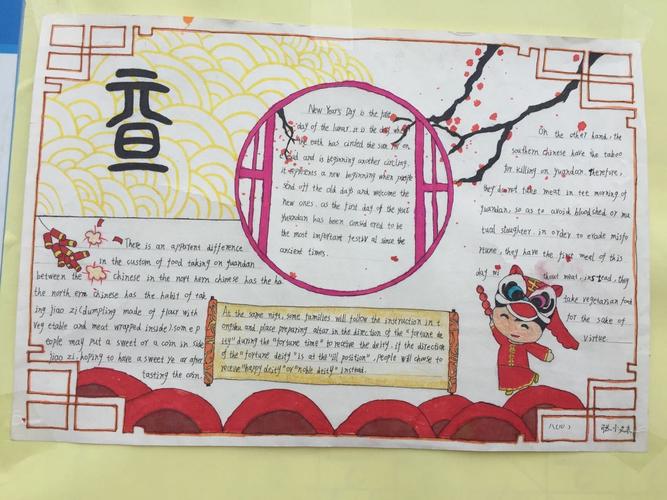 元旦
New Year's Day is the fate
day of the lunar. it is the day when
the earth has circled the sun for on
and is beginning another circling.
it represents a new beginning when people
send off the old days and welcome the
new ones. as the first day of the year
Yuandan has been considered to be
the most important festival since the
ancient times.
On the other hand, the
southern Chinese have the taboo
for killing on yuandan. therefore,
they do not take meat in tee morning of
yuandan, so as to avoid bloodshed or mu
tual slaughter. in order to evade misfo
rtune, they have the first meel of this
day wi thout meat. instead, they
take vegetarian food
for the sake of
virtue.
There is an apparent difference
in the custom of food taking on yuandan
between the chinese in the nort hern chinese has the ha
the north ern chinese has the habit of tak
ing jiao zi (dumpling made of flour with
veg etable and meat wrapped inside). som e p
eople may put a sweet or a coin in side
jiao zi, hoping to have a sweet ye ar after
tasting the coin.
At the same night, some families will follow the instruction in t
and place preparing altar in the direction of the "fortune de
ity" during the "fortune time" to receive the deity. if the direction
of the "fortune deity" is at the "ill position", people will choose to
receive "happy deity" or "noble deity" instead.